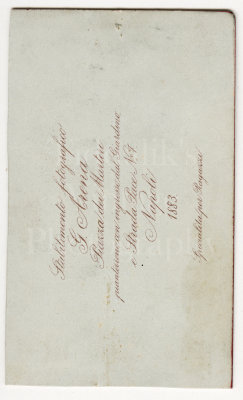 Stabilimento fotografico
G. Arena
Piazza dei Martiri
pianterreno con ingresso dal Giardino
e Strada Pace N. 7
Napoli
1883
Specialità per Ragazzi